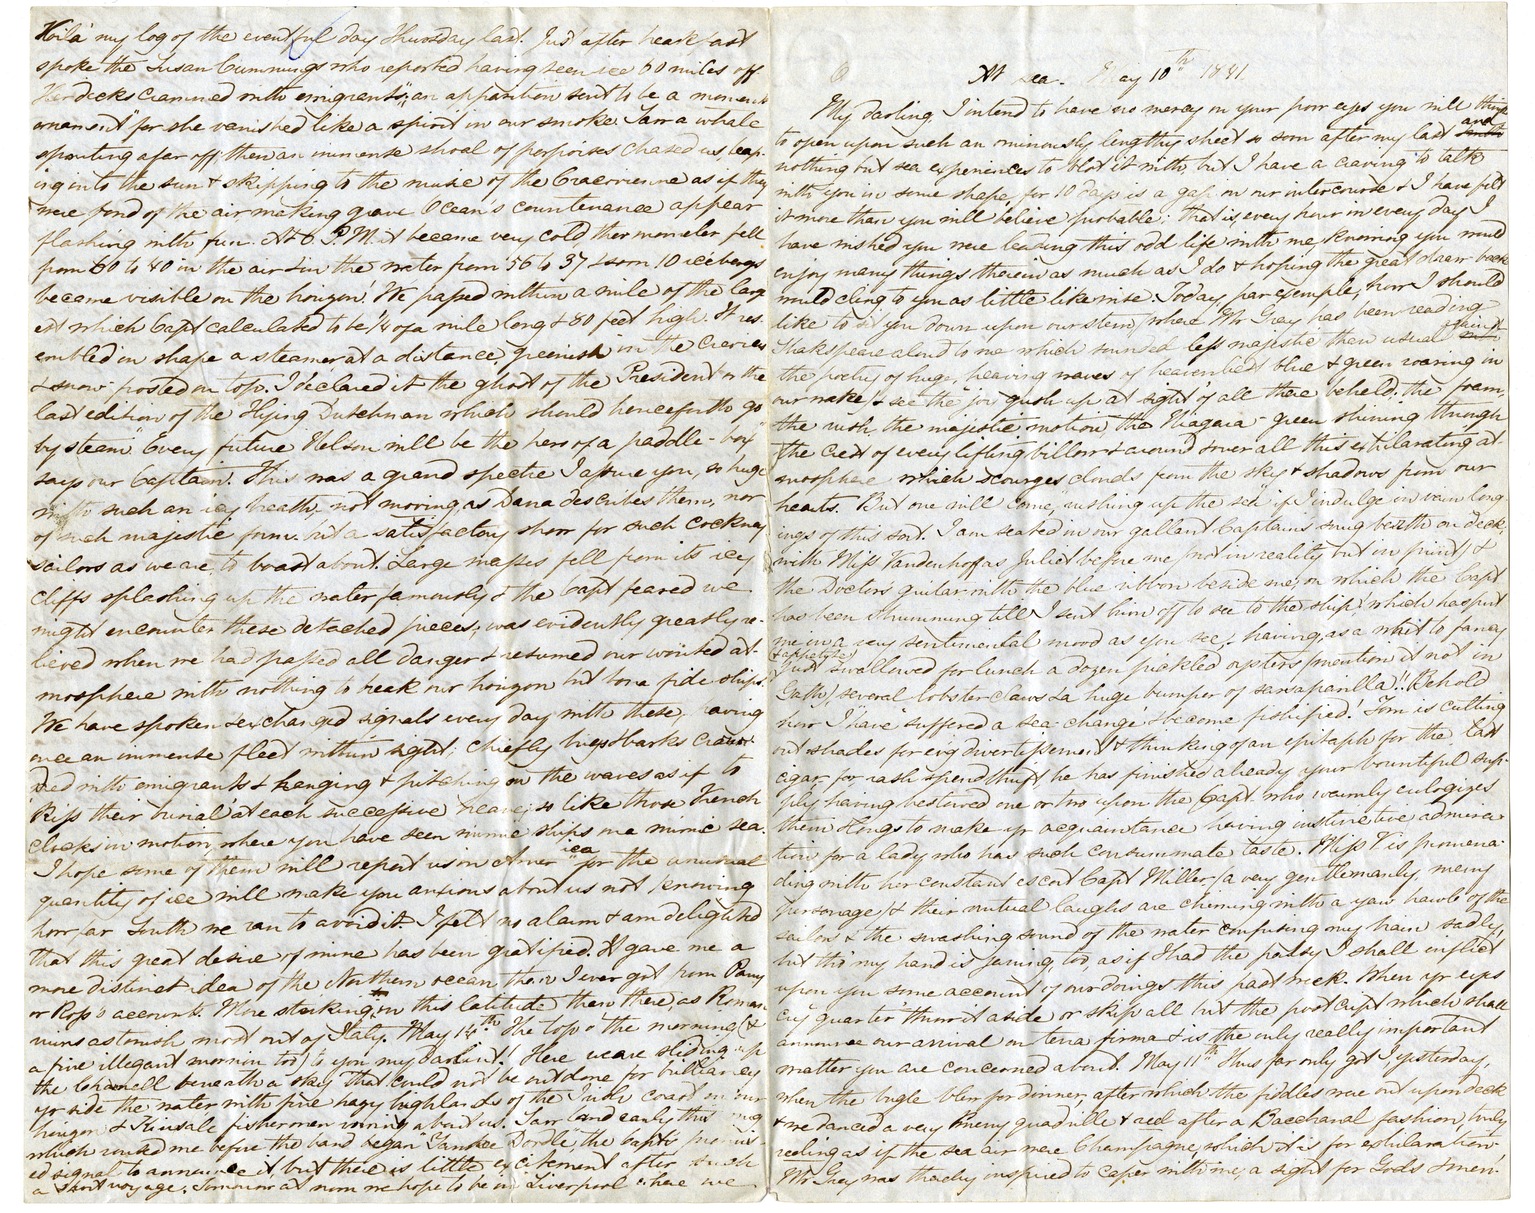 At sea. May 10th 1841
My darling I intend to have no mercy on your poor eyes you will think
to open upon such an ominously lengthy sheet so soon after my last and
nothing but sea experiences to blot it with, but I have a craving to talk
with you in some shape, for 10 days is a gap in our intercourse & I have felt
it more than you will believe probable: that is, every hour in every day I
have wished you were leading this odd life with me, knowing you would
enjoy many things therein as much as I do & hoping the great draw-back
would cling to you as little likewise. Today, par exemple, how I should
like to sit you down upon our stern (where Mr Gray has been reading
Shakspeare aloud to me which sounded less majestic than usual against
the poetry of huge, heaving waves of heavenliest blue & green roaring in
our wake) & see the joy gush up at sight of all there beheld: the foam,
the rush, the majestic motion, the Niagara-green shining through
the crest of every lifting billow & around & over all this exhilarating at-
mosphere which scourges clouds from the sky & shadows from our
hearts. But one will come, rushing up the sea if I indulge in vain long
ings of this sort. I am seated in our gallant Captains snug berth on deck,
with Miss Vandenhoff as Juliet before me (not in reality but in print) &
the Doctors guitar with the blue ribbon beside me, on which the Capt
has been strumming till I sent him off to see to the ship, which has put
me in a very sentimental mood as you see, having, as a whet to fancy
& appetite,
just swallowed for lunch a dozen pickled oysters (mention it not in
Gath) several lobster claws & a huge bumper of sarsaparilla!! Behold
how I have suffered a sea-change & become fishified! Tom is cutting
out shades for our divertissement & thinking of an epitaph for the last
cigar, for rash spendthrift, he has finished already your bountiful sup-
ply having bestowed one or two upon the Capt. who warmly eulogizes
them & longs to make yr acquaintance having instinctive admira
tion for a lady who has such consummate taste. Miss V is promena-
ding with her constant escort Capt Miller (a very gentlemanly, merry
personage) & their mutual laughs are chiming with a yaw hawl of the
sailors & the swashing sound of the water confusing my brain sadly,
but tho' my hand is jarring too, as if I had the palsy I shall inflict
upon you some account of our doings this past week. When yr eyes
cry quarter throw it aside or skip all but the postscript which shall
announce our arrival on terra firma & is the only really important
matter you are concerned about. May 11th Thus far only got I yesterday,
when the bugle blew for dinner, after which the fiddles were out upon deck
& we danced a very merry quadrille & reel after a Bacchanal fashion, truly
reeling as if the sea air were Champagne, which it is for exhilaration
Mr Grey was thereby inspired to caper with me, a sight for Gods & men.
Voila' my log of the eventful day Thursday last. Just after breakfast
spoke the Susan Cummings who reported having seen ice 60 miles off.
Her decks crammed with emigrants; "an apparition sent to be a moments
ornament" for she vanished like a spirit in our smoke. Saw a whale
spouting afar off: then an immense shoal of porpoises chased us, leap-
ing into the sun & skipping to the music of the Cracovienne as if they
were fond of the air making grave Ocean's countenance appear
flashing with fun. At 6 P.M. it became very cold, thermometer fell
from 60 to 40 in the air & in the water from 56 to 37 & soon 10 icebergs
became visible on the horizon! We passed within a mile of the larg
est which Capt calculated to be 1/4 of a mile long & 80 feet high. It res-
embled in shape a steamer, at a distance, greenish in the crevices
& snow, posted on top. I declared it the ghost of the President or the
last edition of the Flying Dutchman which should henceforth go
by steam. "Every future Nelson will be the hero of a paddle-box"
says our Captain. This was a grand spectre I assure you, so huge
with such an icy breath, not moving, as Dana describes them, nor
of such majestic form but a satisfactory show for such cockney
sailors as we are, to boast about. Large masses fell from its icy
cliffs splashing up the water famously & the Capt feared we
might encounter these detached pieces, was evidently greatly re-
lieved when we had passed all danger & resumed our wonted at-
mosphere with nothing to break our horizon but bona fide ships.
We have spoken & exchanged signals every day with these, having
once an immense fleet within sight; chiefly brigs & barks crow-
ded with emigrants & hanging & pitching on the waves as if to
kiss their burial at each successive heave; so like those French
clocks in motion, where you have seen mimic ships on a mimic sea.
I hope some of them will report us in America for the unusual
quantity of ice will make you anxious about us not knowing
how far South we ran to avoid it. I felt no alarm & am delighted
that this great desire of mine has been gratified. It gave me a
more distinct idea of the Northern ocean than I ever got from Parry
or Ross's accounts. More striking in this latitude than there, as Roman
ruins astonish most out of Italy. May 14th The top o the morning (&
a fine illegant mornin too) to you my darlint! Here we are sliding up
the channell beneath a sky that could not be outdone for brilliancy
yr side the water with fine hazy highlands of the Irish coast on our
horizon & Kinsale fishermen winning about us. Saw land early this mg
which roused me before the band began Yankee Doodle the capts promis-
ed signal to announce it, but there is little excitement after such
a short voyage. Tomorrow at noon we hope to be in Liverpool where we